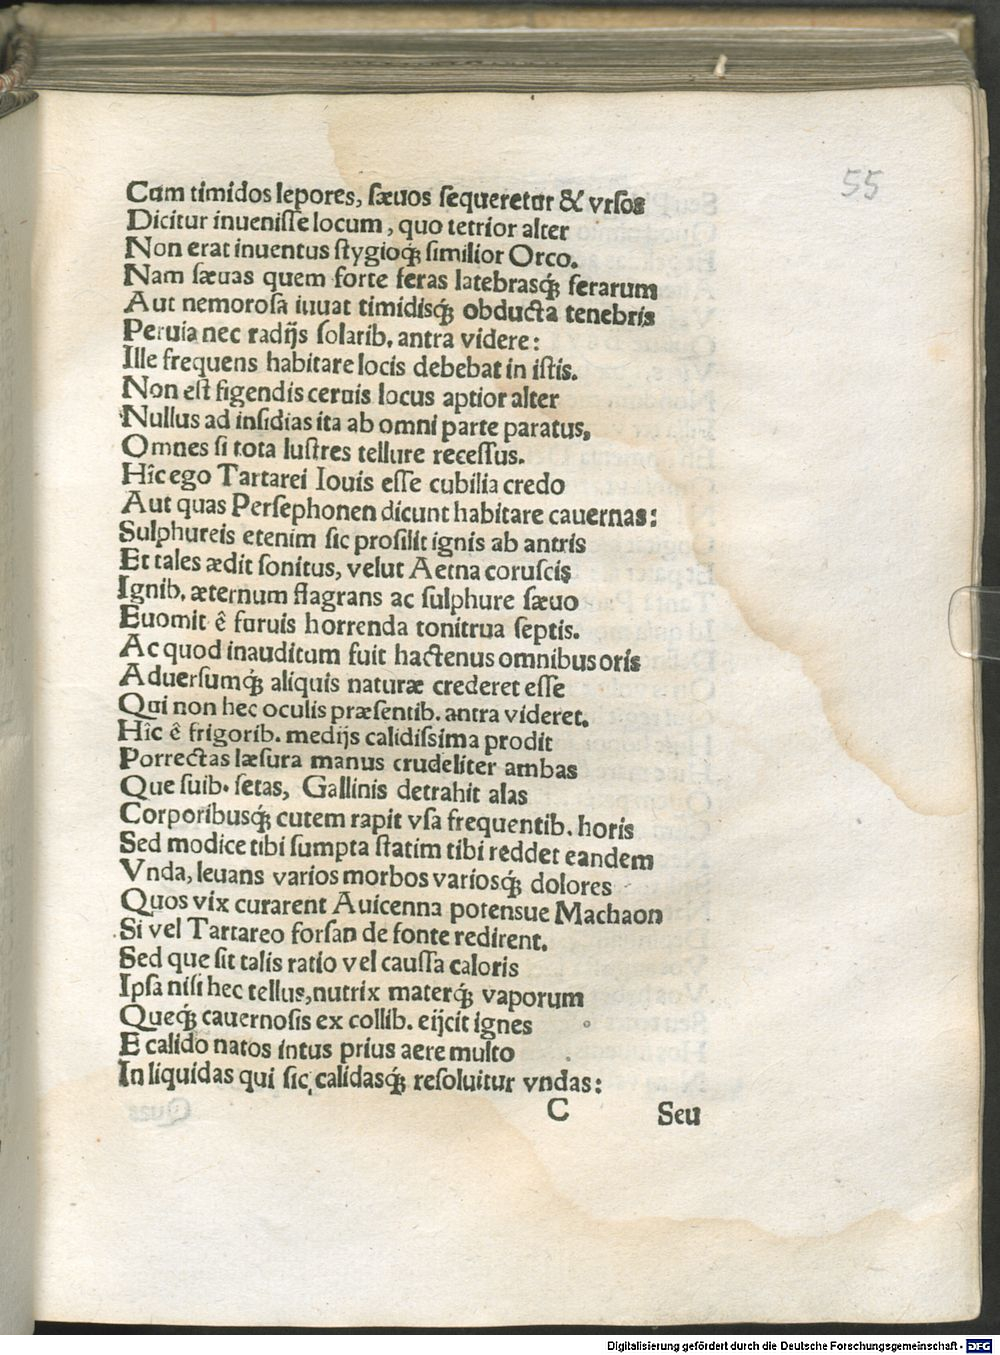 55
Cum timidos lepores, sæuos sequeretur & vrsos
Dicitur inuenisse locum, quo tetrior alter
Non erat inuentus stygioq́; similior Orco.
Nam sæuas quem forte feras latebrasq́; ferarum
Aut nemorosa iuuat timidisq́; obducta tenebris
Peruia nec radijs solarib. antra videre:
Ille frequens habitare locis debebat in istis.
Non est figendis ceruis locus aptior alter
Nullus ad insidias ita ab omni parte paratus,
Omnes si tota lustres tellure recessus.
Hîc ego Tartarei Iouis esse cubilia credo
Aut quas Persephonen dicunt habitare cauernas:
Sulphureis etenim sic prosilit ignis ab antris
Et tales ædit sonitus, velut Aetna coruscis
Ignib. æternum flagrans ac sulphure sæuo
Euomit ê furuis horrenda tonitrua septis.
Ac quod inauditum fuit hactenus omnibus oris
Aduersumq́; aliquis naturæ crederet esse
Qui non hec oculis præsentib. antra videret.
Hîc ê frigorib. medijs calidissima prodit
Porrectas læsura manus crudeliter ambas
Que suib. setas, Gallinis detrahit alas
Corporibusq́; cutem rapit vsa frequentib. horis
Sed modice tibi sumpta statim tibi reddet eandem
Vnda, leuans varios morbos variosq́; dolores
Quos vix curarent Auicenna potensue Machaon
Si vel Tartareo forsan de fonte redirent.
Sed que sit talis ratio vel caussa caloris
Ipsa nisi hec tellus, nutrix materq́; vaporum
Queq́; cauernosis ex collib. eijcit ignes
E calido natos intus prius aere multo
In liquidas qui sic calidasq́; resoluitur vndas:
C Seu
Digitalisierung gefördert durch die Deutsche Forschungsgemeinschaft - DFG